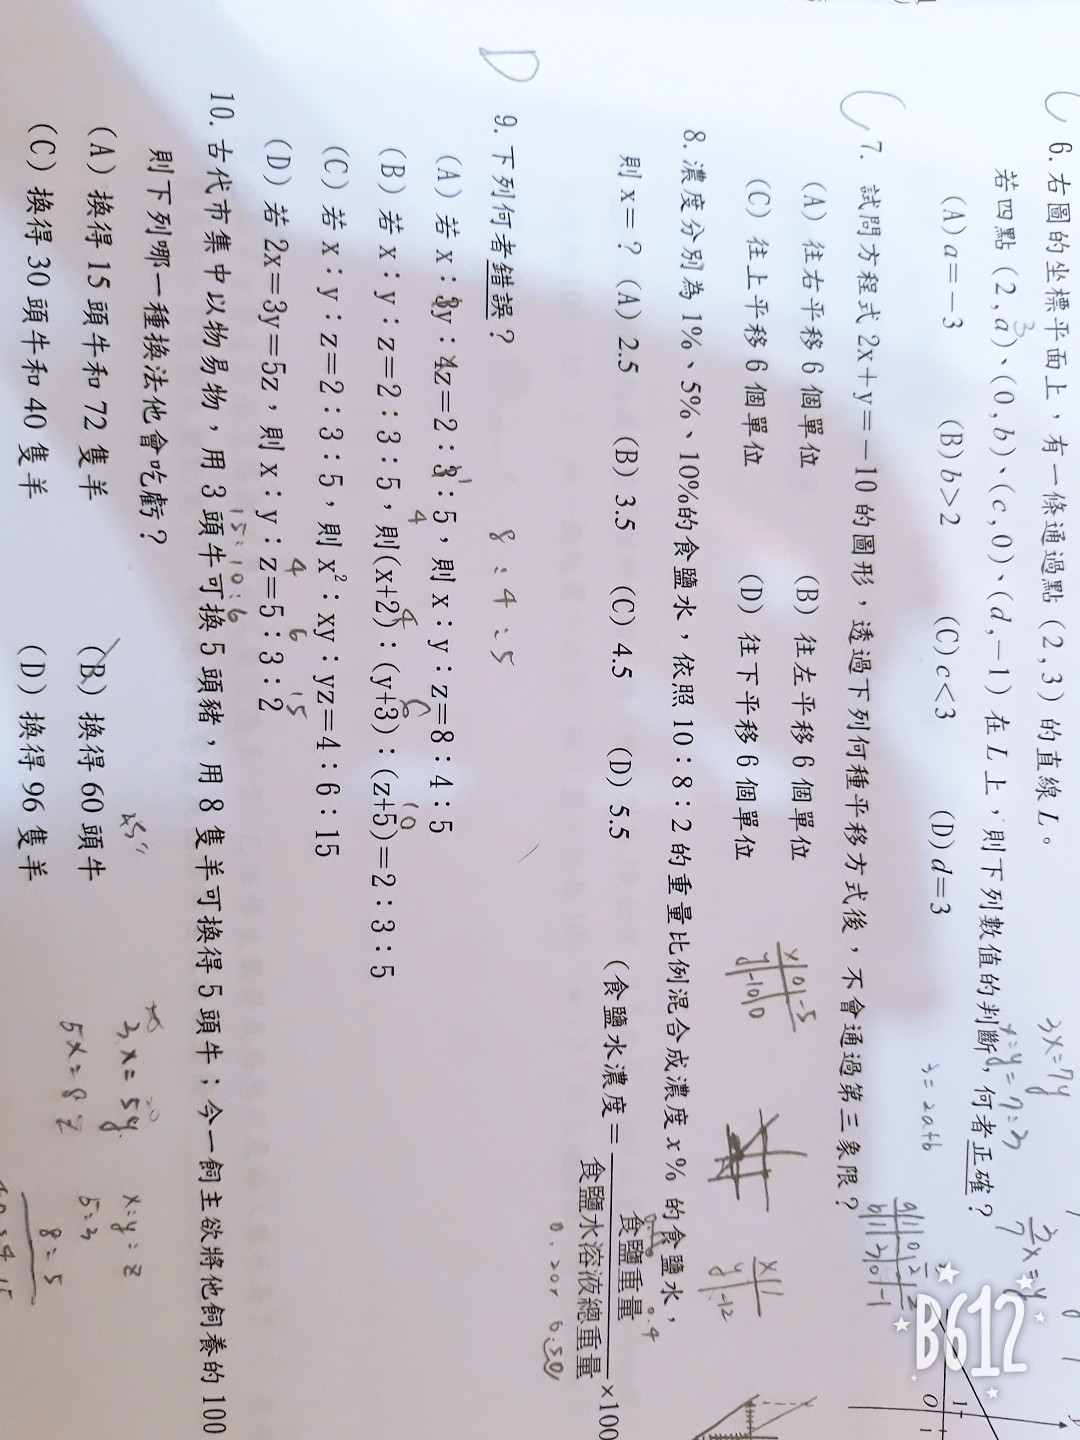 C 6. 右圖的坐標平面上，有一條通過點(2,3)的直線L。
若四點(2,a)、(0,b)、(c,0)、(d,-1)在L上，則下列數值的判斷，何者正確？
(A) a=-3 (B) b>2 (C) c<3 (D) d=3
3
3x=7y
x:y=7:3
3=2a+b
C 7. 試問方程式2x+y=-10的圖形，透過下列何種平移方式後，不會通過第三象限？
(A) 往右平移6個單位 (B) 往左平移6個單位
(C) 往上平移6個單位 (D) 往下平移6個單位
x|0|-5
y|-10|0
8. 濃度分別為1%、5%、10%的食鹽水，依照10:8:2的重量比例混合成濃度x%的食鹽水，
則x=？(A) 2.5 (B) 3.5 (C) 4.5 (D) 5.5 (食鹽水濃度=食鹽重量/食鹽水溶液總重量×100
D 9. 下列何者錯誤？
8:4:5
(A) 若x:3y:4z=2:3:5，則x:y:z=8:4:5
(B) 若x:y:z=2:3:5，則(x+2):(y+3):(z+5)=2:3:5
4 6 10
(C) 若x:y:z=2:3:5，則x²:xy:yz=4:6:15
4 6 15
(D) 若2x=3y=5z，則x:y:z=5:3:2
15:10:6
10. 古代市集中以物易物，用3頭牛可換5頭豬，用8隻羊可換得5頭牛；今一飼主欲將他飼養的100
則下列哪一種換法他會吃虧？
(A) 換得15頭牛和72隻羊 (B) 換得60頭牛
(C) 換得30頭牛和40隻羊 (D) 換得96隻羊
3x=5y
5x=8z
x:y:z
5:3
8:5
B612
O
1
1